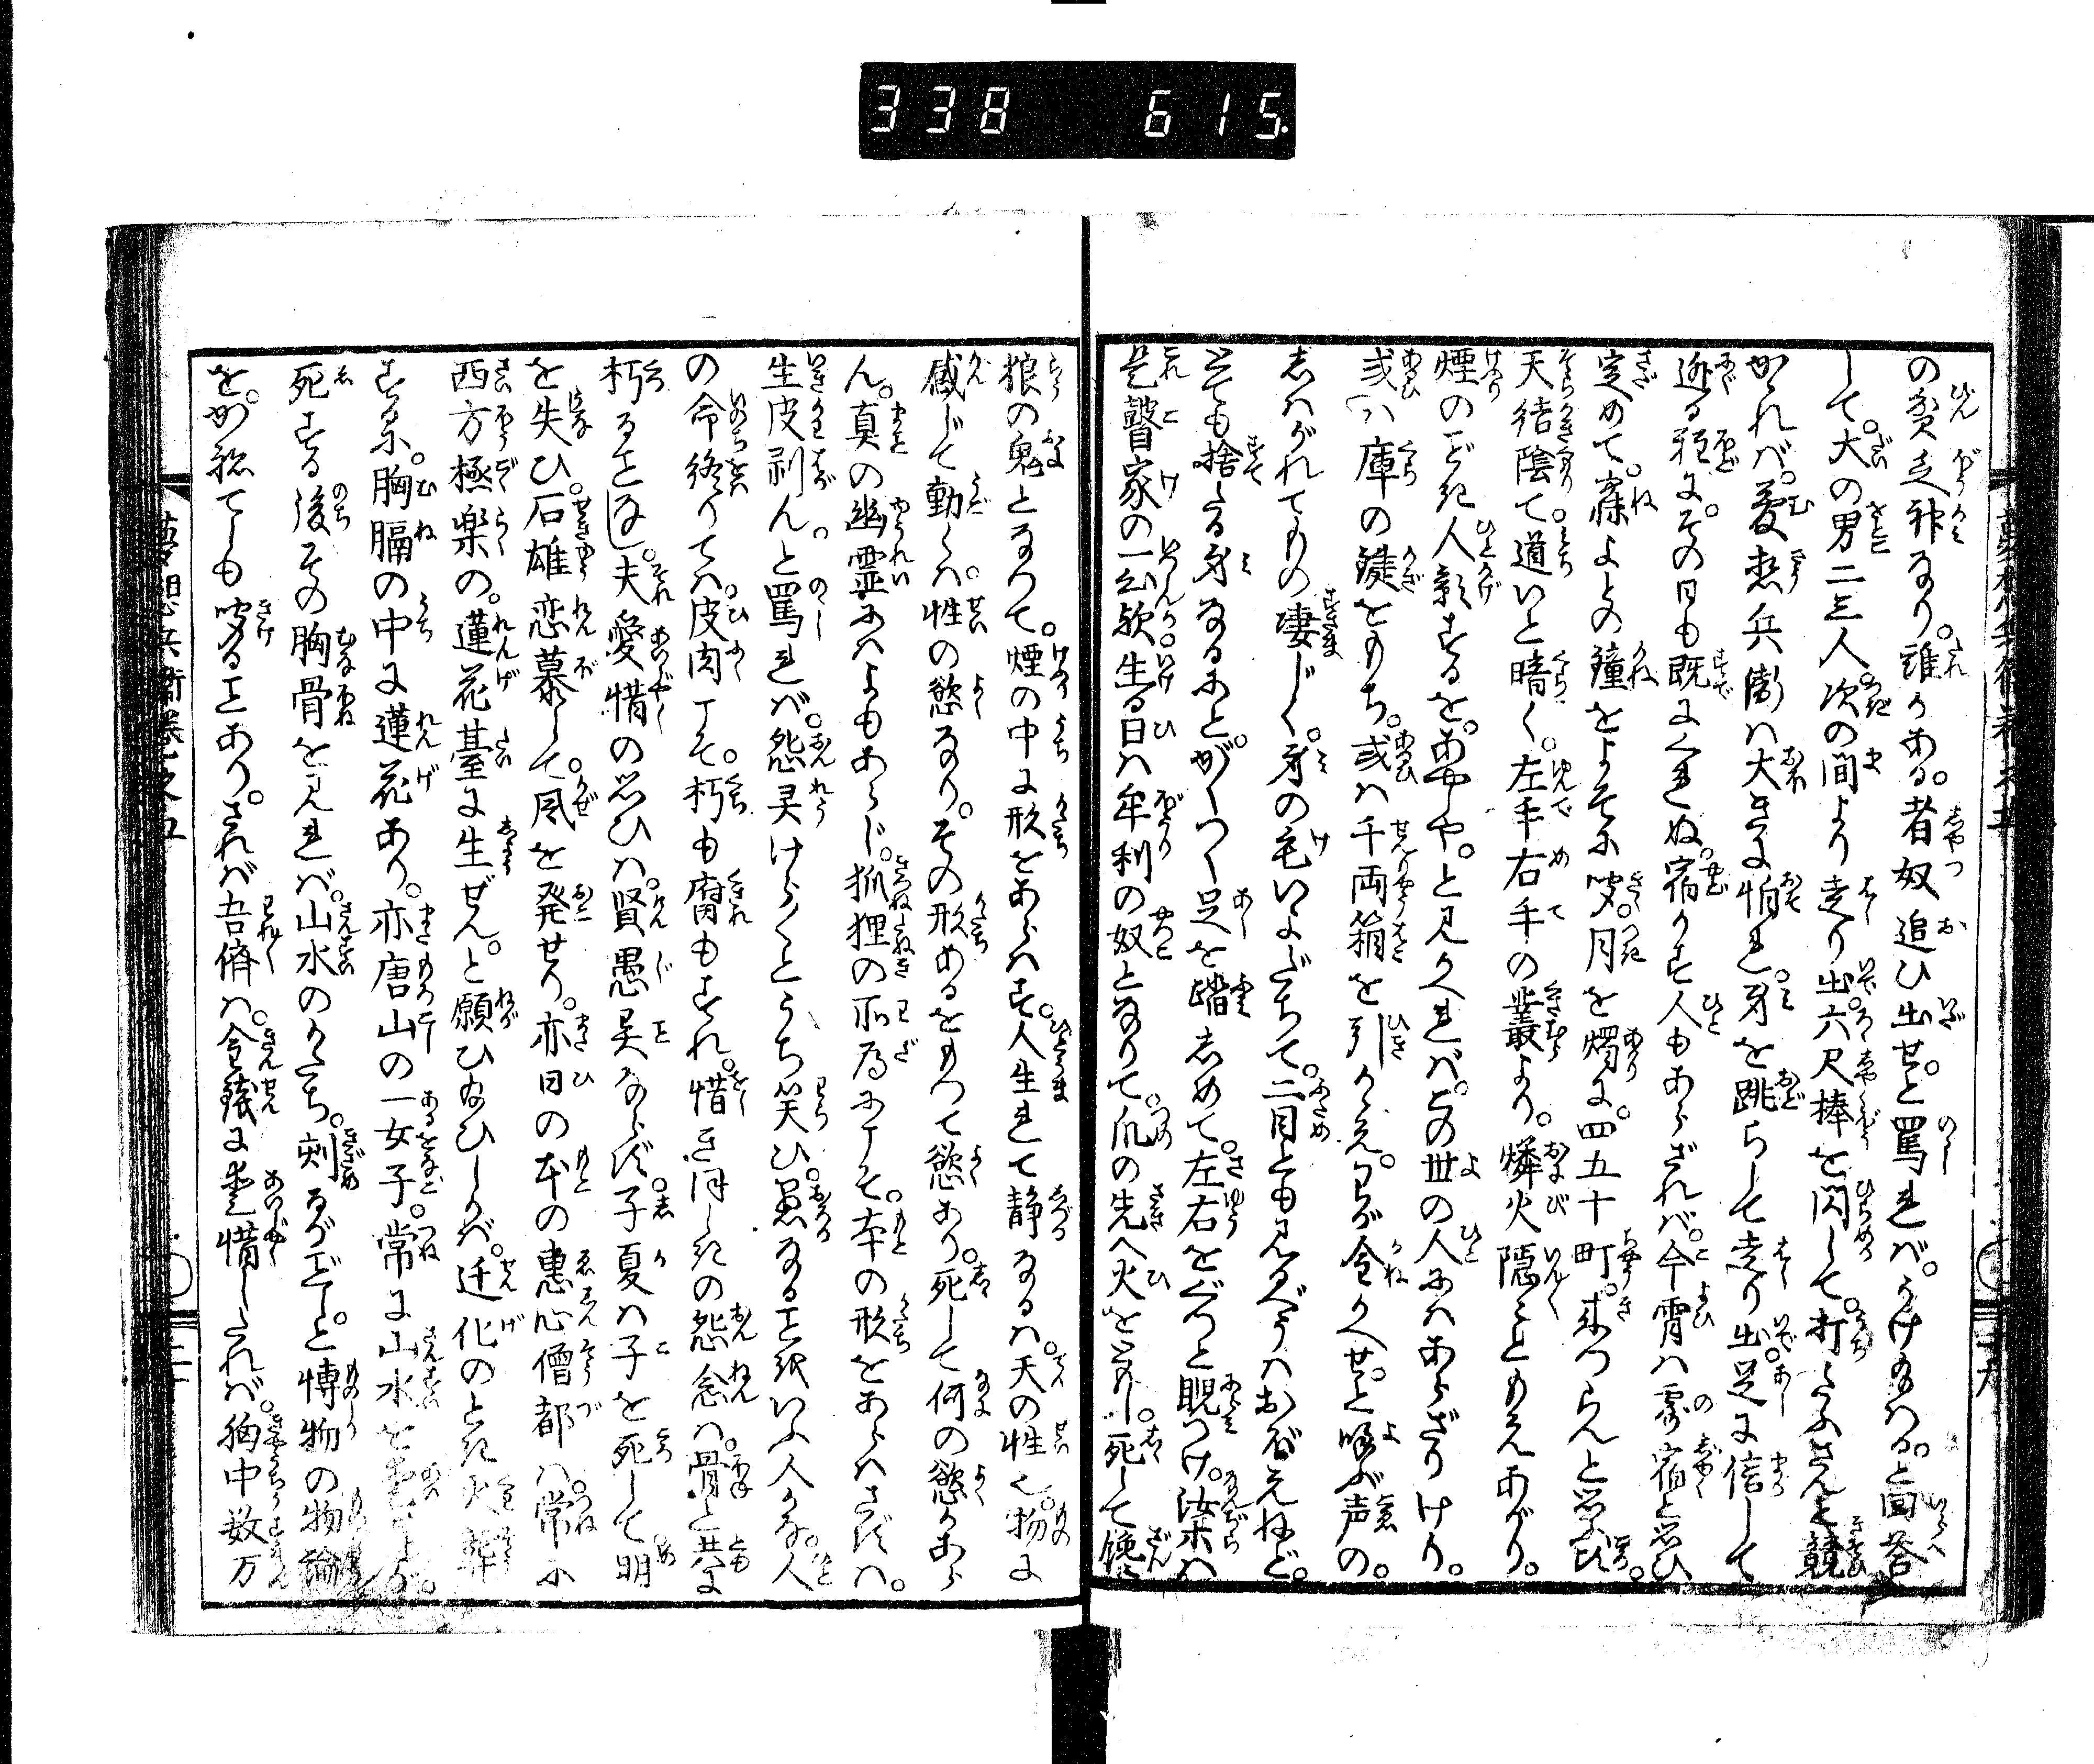 338 615
の貧乏神なり。誰かある。者奴追ひ出せ。と罵れば。うけ給はる。と回答
して。大の男二三人。次の間より走り出。六尺棒を閃して。打たふさんと競
かゝれば。夢想兵衛は大きに怕れ。身を跳らして走り出。足に信して
迯る程に。その日も既にくれぬ。宿かす人もあらざれば。今霄は露宿と思ひ
定めて。寐よとの鐘をよそに聞。月を燭に。四五十町。来つらんと思ふ比。
天結陰て。道いと暗く。左手右手の叢より。燐火隠々ともえあがり。
煙のごとき人影するを。あやや。と見かへれば。この世の人にはあらざりけり。
或は庫の鍵をもち。或は千両箱を引かゝえ。わが金かへせ。と喚ぶ声の。
しはがれてもの凄じく。身の毛いよだちて。二目とも見るべうはおぼえねど。
とても捨たる身なるにと。がくつく足を踏しめて。左右をぐつと睨つけ。汝等は
是瞽家の一公歟。生る日は牟利の奴となりて。爪の先へ火をともし。死して饞
狼の鬼となつて。煙の中に形をあらはす。人生れて静なるは。天の性也。物に
感じて動くは。性の慾なり。その形あるをもつて慾あり。死して何の慾かあら
ん。真の幽霊にはよもあらじ。狐狸の所為にこそ。本の形をあらはさずは。
生皮剥ん。と罵れば。怨灵けらけらとうち笑ひ。愚なることをいふ人かな。人
の命終りては。皮肉こそ。朽も腐もすれ。惜きほしきの怨念は。骨と共に
朽ることなし。夫愛惜の思ひは。賢愚異ならず。子夏は子を死して明
を失ひ。石雄恋慕して。風を発せり。亦日の本の恵心僧都は。常に
西方極楽の。蓮花臺に生ぜん。と願ひ給ひしかば。迁化のとき火葬
すれば。胸膈の中に蓮花あり。亦唐山の一女子。常に山水を愛せしが。
死する後その胸骨を見れば。山水のかたち。刻るがごとし。と博物の物論
を。かねてしも聞ることあり。されば吾儕は。金銭に愛惜したれば。胸中数万
夢想兵衛巻之五